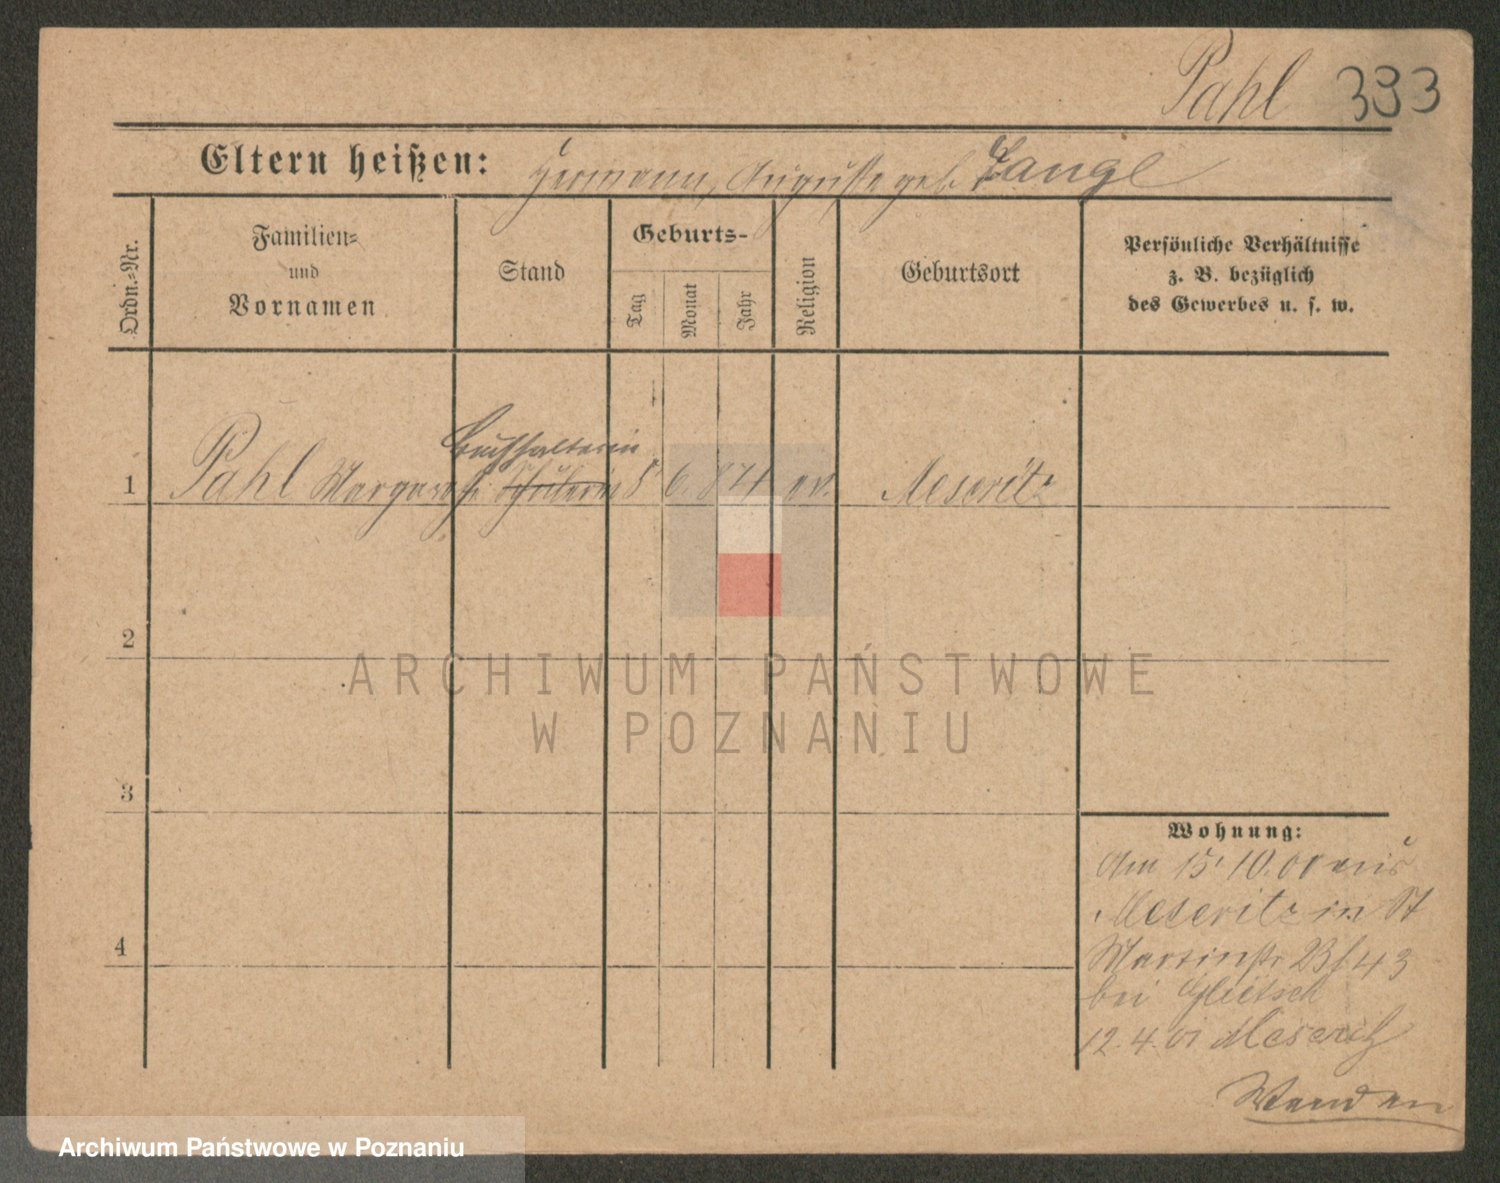 Pahl 393
Eltern heißen: Hermann, Auguste geb. Lange
Ordn.-Nr.
Familien-
und
Vornamen
Stand
Geburts-
Tag
Monat
Jahr
Religion
Geburtsort
Persönliche Verhältnisse
z. B. bezüglich
des Gewerbes u. s. w.
Buchhalterin
1 Pahl Margarethe Schülerin 5 6. 84 ev. Meseritz
2
ARCHIWUM PAŃSTWOWE
W POZNANIU
3
Wohnung:
Am 15. 10. 00 aus
Meseritz in St
Martinstr 43
bei
4
12. 4. 01 Meseritz
Wenden
Archiwum Państwowe w Poznaniu